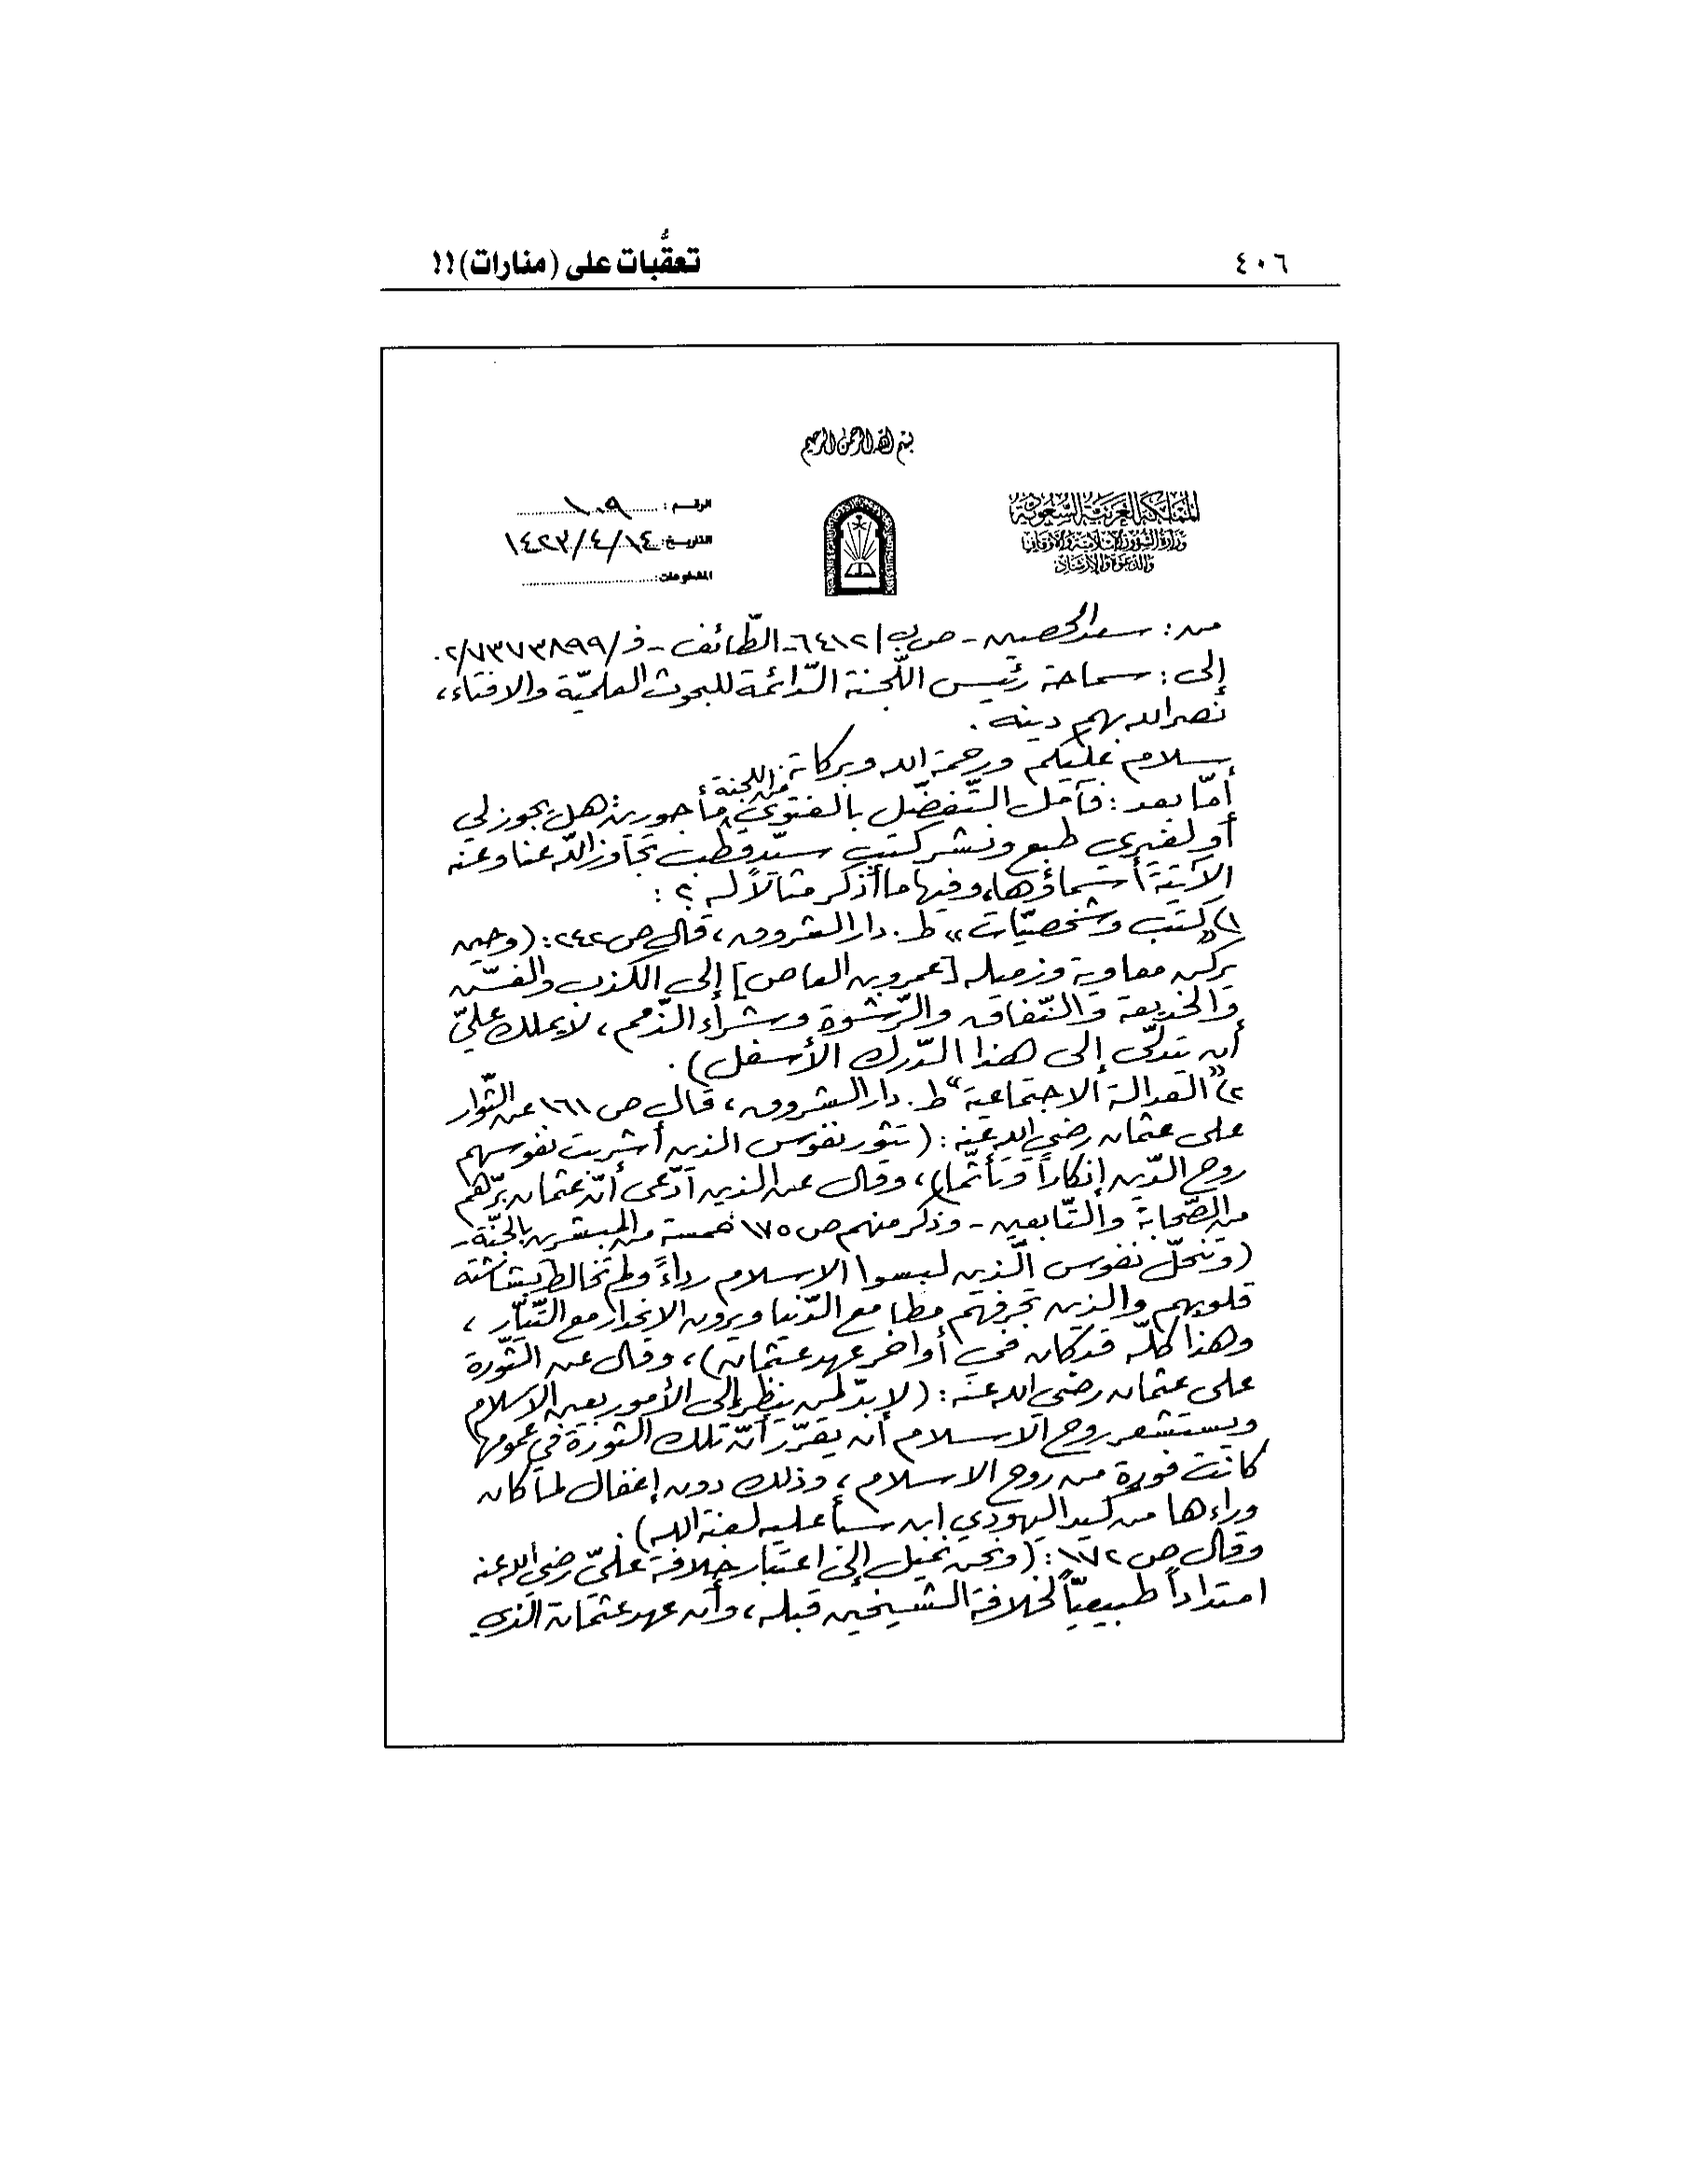 ٤٠٦
تعقُّبات على (منارات)!!
بسم الله الرحمن الرحيم
المملكة العربية السعودية
وزارة الشؤون الإسلامية والأوقاف
والدعوة والإرشاد
الرقم : ١٠٩
التاريخ: ١٤٢٣/٤/١٤
المشفوعات:
من: سعد الحصين - ص ب/٦٤١٢ - الطّائف - ف/٠٢/٧٣٧٣٨٩٩
إلى: سماحة رئيس اللّجنة الدّائمة للبحوث العلميّة والافتاء،
نصر الله بهم دينه.
سلام عليكم ورحمة الله وبركاته.
أمّا بعد: فآمل التّفضّل بالفتوى من اللجنة، مأجورين: هل يجوز لي
أو لغيري طبع ونشر كتب سيّد قطب تجاوز الله عنا وعنه
الآتية أسماؤها، وفيها ما أذكر مثالاً له؟ :
١) «كتب وشخصيّات» ط. دار الشروق، قال ص ٢٤٢: (وحين
يركن معاوية وزميله [عمرو بن العاص] إلى الكذب والغشّ
والخديعة والنّفاق والرّشوة وشراء الذّمم، لا يملك عليّ
أن يتدلّى إلى هذا الدّرك الأسفل).
٢) "العدالة الاجتماعية" ط. دار الشروق، قال ص ١٦١ عن الثّوار
على عثمان رضي الله عنه: (تثور نفوس الذين أشربت نفوسهم
روح الدّين إنكاراً وتأثّما)، وقال عن الذين ادّعى أنّ عثمان برّهم
من الصّحابة والتّابعين - وذكر منهم ص ١٧٥ خمسة من المبشرين بالجنّة -
(وتنحلّ نفوس الّذين لبسوا الإسلام رداءً ولم تخالط بشاشته
قلوبهم والذين تجرفهم مطامع الدّنيا ويرون الانحدار مع التّيّار،
وهذا كلّه قد كان في أواخر عهد عثمان)، وقال عن الثّورة
على عثمان رضي الله عنه: (لا بدّ لمن ينظر إلى الأمور بعين الإسلام
ويستشعر روح الاسلام أن يقرّر أنّ تلك الثورة في عمومها
كانت فورة من روح الاسلام، وذلك دون إغفال لما كان
وراءها من كيد اليهودي ابن سبأ عليه لعنة الله).
وقال ص ١٧٢: (ونحن نميل إلى اعتبار خلافة عليّ رضي الله عنه
امتداداً طبيعيّاً لخلافة الشيخين قبله، وأن عهد عثمان الذي